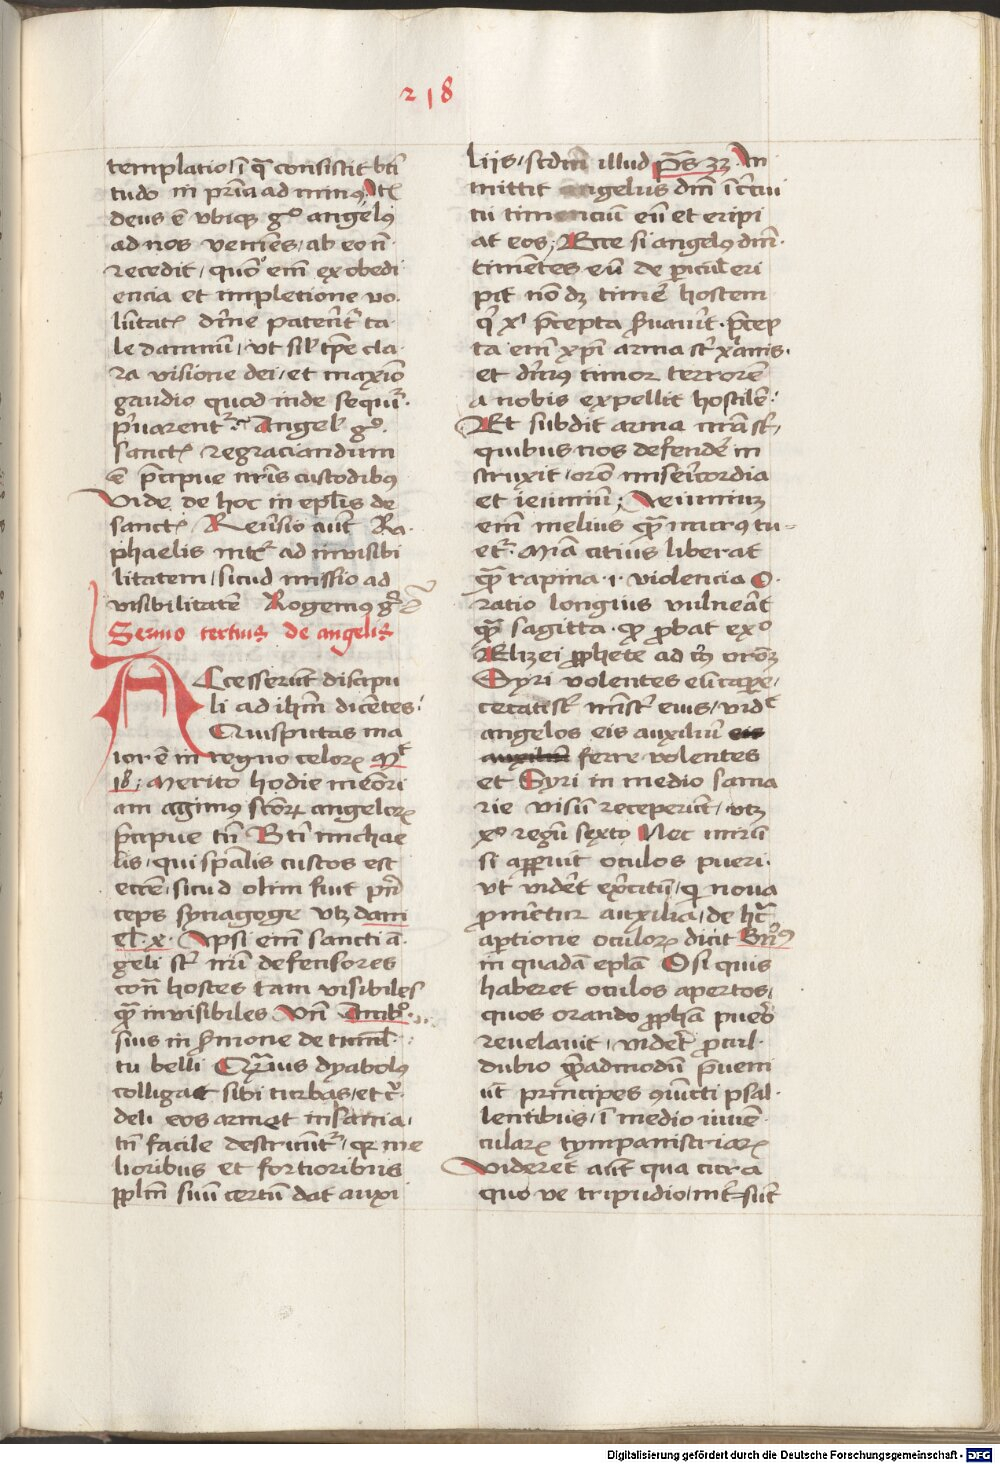 218
templatio / ī q̄ consistit bti
tudo in p̄ria ad minꝰ. Itē
deus ē vbiqȝ gͦ angelꝰ
ad nos veniēs / ab eo n̄
recedit / quō em̄ ex obedi
encia et impletione vo
lūtatꝭ diīne patērēt̄ ta
le damnū / vt sil̄ tp̄e cla
ra visione dei / et maxīo
gaudio quod inde sequit̄
p̄uarent̄ Angel̄ gͦ
sanctꝭ regraciandum
ē p̄cipue nr̄is custodibꝰ
Vide de hoc in ep̄lis de
sanctꝭ Reūsio aūt Ra
phaelis int̄ ad inuisibi
litatem / sicud missio ad
visibilitatē Rogemꝰ gͦ
Sermo tertius de angelis
Accesserūt discipu
li ad ih̄m dicētes
Quis putas ma
ior ē in regno celorꝝ Mᵗ
18 ; Merito hodie memori
am agimꝰ sctōrꝝ angelorꝝ
p̄cipue tn̄ Bti michae
lis / qui sp̄alis custos est
eccē / sicud olim fuit p̄n
ceps synagoge vtȝ dani
el̄ x. Ipsi em̄ sancti ā
geli st̄ nr̄i defensores
con̄ hostes tam visibiles
q̄ inuisibiles Vn̄ Ambͦ
sius in s̄mone de tumul
tu belli Q̄uis dyabolꝰ
colligat sibi turbas / et c̄
deli eos armet insania /
tn̄ facile destruūt̄ / qr me
lioribus et fortioribus
ppl̄m suū certū dat auxi
liis / scdm illud p̄s 33 In
mittit angelus dn̄i ī c̄cui
tu timencium eū et eripi
at eos ; Ecce si angelꝰ dn̄i
timētes eū de picul̄ eri
pit nō dȝ timē hostem
qͥ xͥ p̄cepta s̄uauīt. p̄cep
ta em̄ xp̄i arma st̄ xͥanis
et diuīnꝰ timor terrorē
a nobis expellit hostilē
Et subdit arma nr̄a st̄ /
quibus nos defendē in
struxit / orō miseīcordia
et ieiuniū ; Ieiuniuȝ
em̄ melius q̄ murꝰ tu
et̄. Mīa citius liberat
q̄ rapina .i. violencia O
ratio longius vulneāt
q̄ sagitta. qd̄ ꝓbat exͦ
Elizei ꝓphete ad cuiꝰ orōeȝ
Syri volentes eū capē /
cecati st̄ ministͥ eius / vidᵗ
angelos eis auxiliū
ferre volentes
et Syri in medio sama
rie visū receperūt / vtȝ
xͦ regū sexto Nec mirū
si aꝑuit oculos pueri
vt vidēt ex̄citū / qr noua
ꝓmētur auxilia / de hͨ
aꝑtione oculorꝝ dicit Bn̄ꝰ
in quadā epl̄a O si quis
haberet oculos apertos /
quos orando ꝓph̄a pueō
reuelauit / videēt ꝓcul
dubio q̄admodū p̄ueni
ūt principes ꝯiūcti psal
lentibus / ī medio iuuē
cularꝝ tympanistriarꝝ
Videret aūt qua cura
quo ve tripudio / int̄sūt
Digitalisierung gefördert durch die Deutsche Forschungsgemeinschaft - DFG